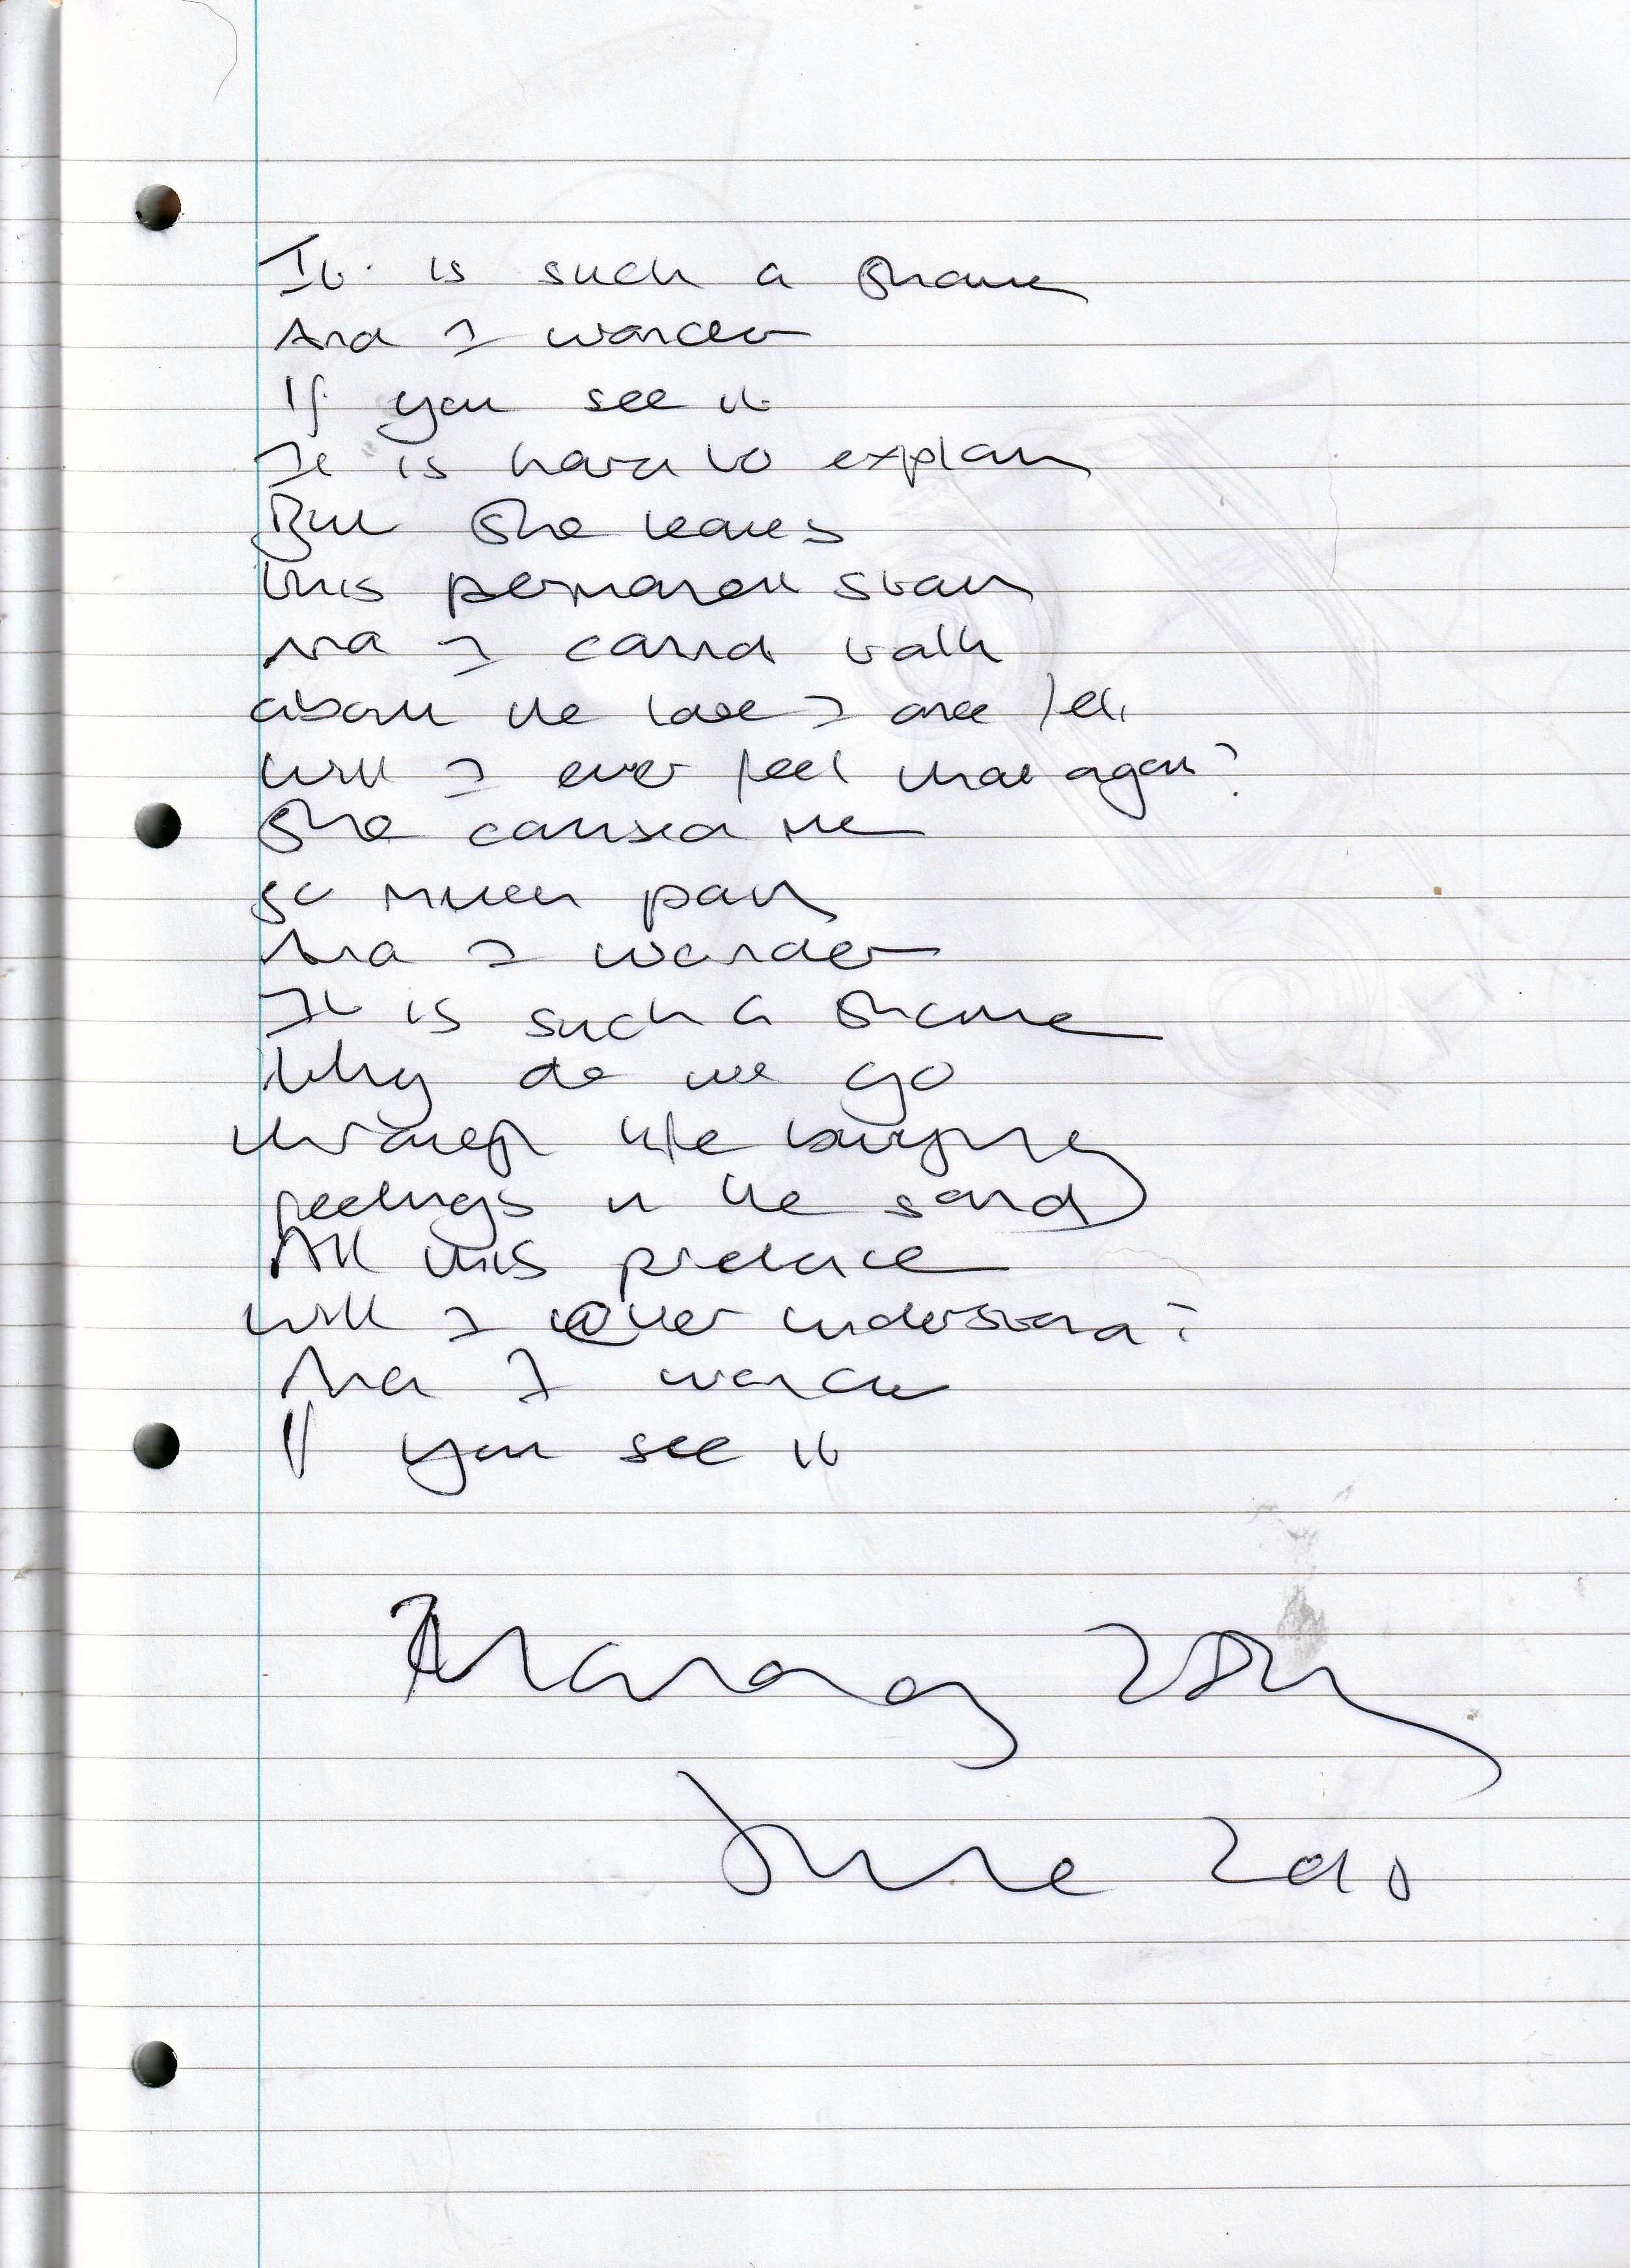 It is such a shame
And I wonder
If you see it
It is hard to explain
But she leaves
this permanent stain
And I cannot talk
about the love I once felt.
Will I ever feel that again?
She caused me
so much pain
And I wonder
It is such a shame
Why do we go
through life burying
feelings in the sand
All this pretence
Will I ever understand?
And I wonder
If you see it
June 2010